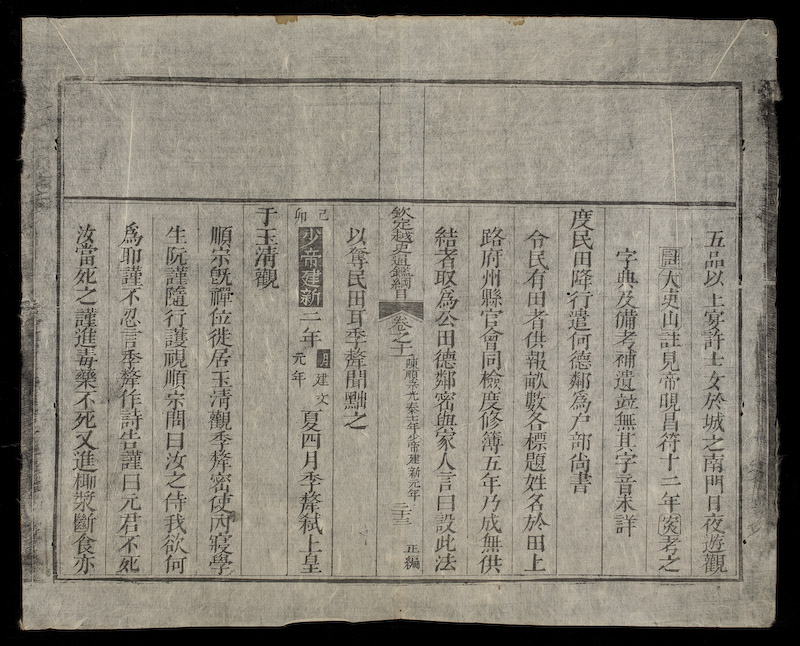 五品以上宴許士女於城之南門日夜遊觀
註大吏山註見帝晛昌符十二年㳼考之
字典及備考補遺竝無其字音未詳
度民田降行遣何德鄰為户部尚書
令民有田者供報畝數各標題姓名於田上
路府州縣官會同檢度修簿五年乃成無供
結者取為公田德鄰密與家人言曰設此法
欽定越史通鑑綱目 卷之十一 陳順宗光泰十一年少帝建新元年 二十三 正編
以奪民田耳季犛聞黜之
己卯 少帝建新二年 明建文元年 夏四月季犛弒上皇
于玉清觀
順宗旣禪位徙居玉清觀季犛密使內寢學
生阮謹隨行護視順宗問曰汝之侍我欲何
為耶謹不忍言季犛作詩告謹曰元君不死
汝當死之謹進毒藥不死又進椰漿斷食亦